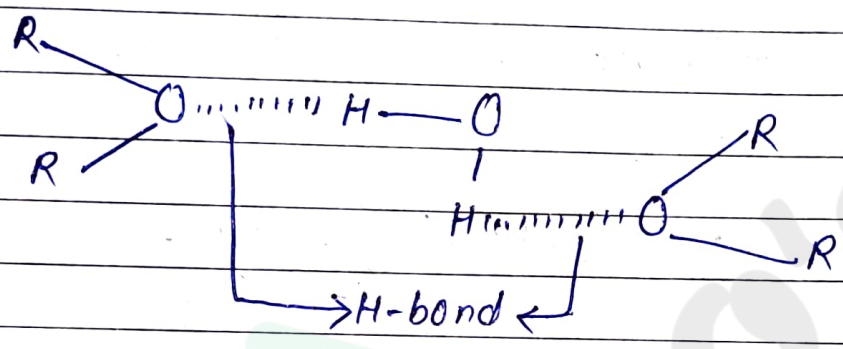 R
O H O
R R
H O
R
H-bond